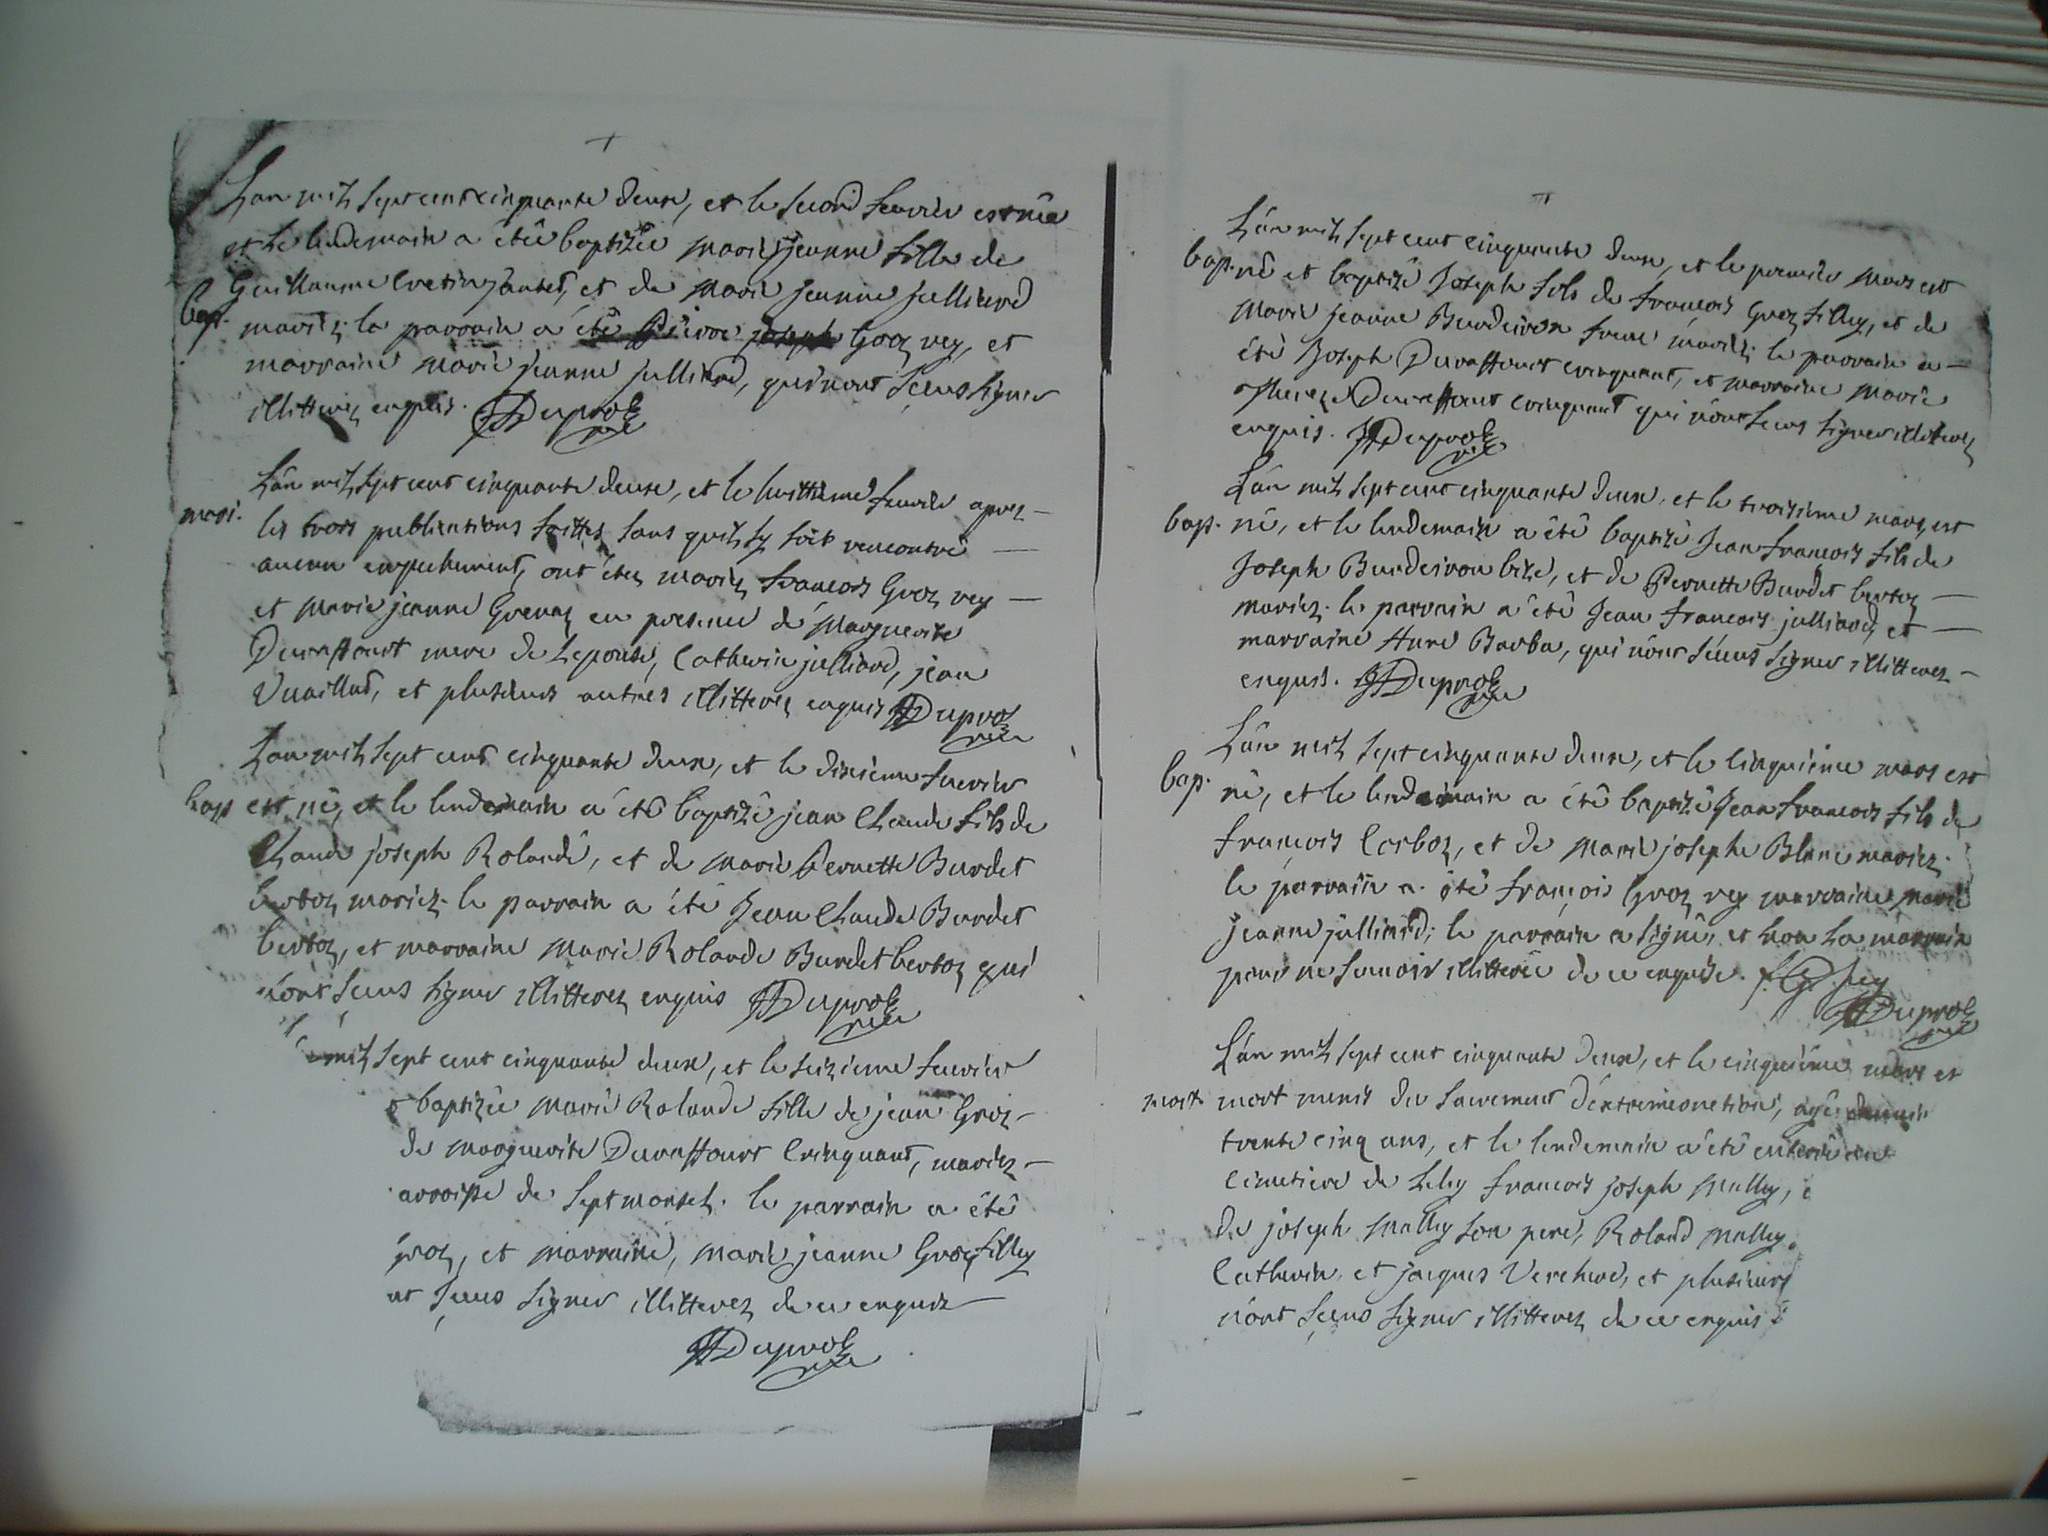 L'an mil sept cent cinquante deux, et le second fevrier est née
et le lendemain a étée baptizée marie jeanne fille de
bap. Guillaume Cretin jantet, et de marie jeanne julliard
mariéz; le parrain a été pierre joseph Groz rey, et
marraine marie jeanne julliard, qui n'ont sceus signer
illitterez enquis. Duproz
L'an mil sept cent cinquante deux, et le huittieme fevrier apres
mari. les trois publications faittes sans quil sy soit rencontré
aucun empechement, ont étez mariez francois Groz rey
et marie jeanne Grenaz en presence de marguerite
Duraffourt mere de lepouse, Catherin julliard, jean
Vuaillat, et plusieurs autres illitterez enquis Duproz
L'an mil sept cent cinquante deux, et le dixieme fuevrier
bap est né, et le lendemain a été baptizé jean Claude fils de
Claude joseph Rolandé, et de marie pernette Burdet
bertoz mariez. le parrain a été Jean Claude Burdet
bertoz, et marraine marie Rolande Burdet bertoz qui
n'ont sceus signer illitterez enquis Duproz
mil sept cent cinquante deux, et le seizieme fevrier
baptizée marie Rolande fille de jean Groz
de marguerite Duraffourt Crinquant, mariez
arroisse de septmoncel. le parrain a été
groz, et marraine, marie jeanne Groz filley
nt sceus signer illitterez de ce enquiz
Duproz
L'an mil sept cent cinquante deux, et le premier mars est
bap. né et baptizé Joseph fils de francois Groz filley, et de
marie jeanne Burdeiron mariéz; le parrain a
été Joseph Duraffourt crinquant, et marraine marie
Duraffourt crinquant qui n'ont sceus signer illiterez
enquis. Duproz
L'an mil sept cent cinquante deux, et le troisieme mars, est
bap. né, et le lendemain a été baptizé Jean francois fils de
Joseph Burdeiron bize, et de Pernette Burdet bertoz
mariez. le parrain a été Jean francois julliard et
marraine Anne Barba, qui n'ont sceus signer illitterez
enquis. Duproz
L'an mil sept cinquante deux, et le cinquieme mars est
bap. né, et le lendemain a été baptizé Jean francois fils de
françois Corboz, et de marie josephe Blanc mariez.
le parrain a été françois Groz rey marraine marie
jeanne julliard; le parrain a signé, et non la marraine
pour ne scavoir illitterée de ce enquise. f. G. rey
Duproz
L'an mil sept cent cinquante deux, et le cinquiéme mars et
mort. mort munis du sacrement d'extremeonction, agé denviron
trente cinq ans, et le lendemain a été enterré au
cimetiere de francois joseph mulley,
de joseph mulley son pere, Roland mulley
Catherin, et jacques Verchere, et plusieurs
n'ont sceus signer illitterez de ce enquis